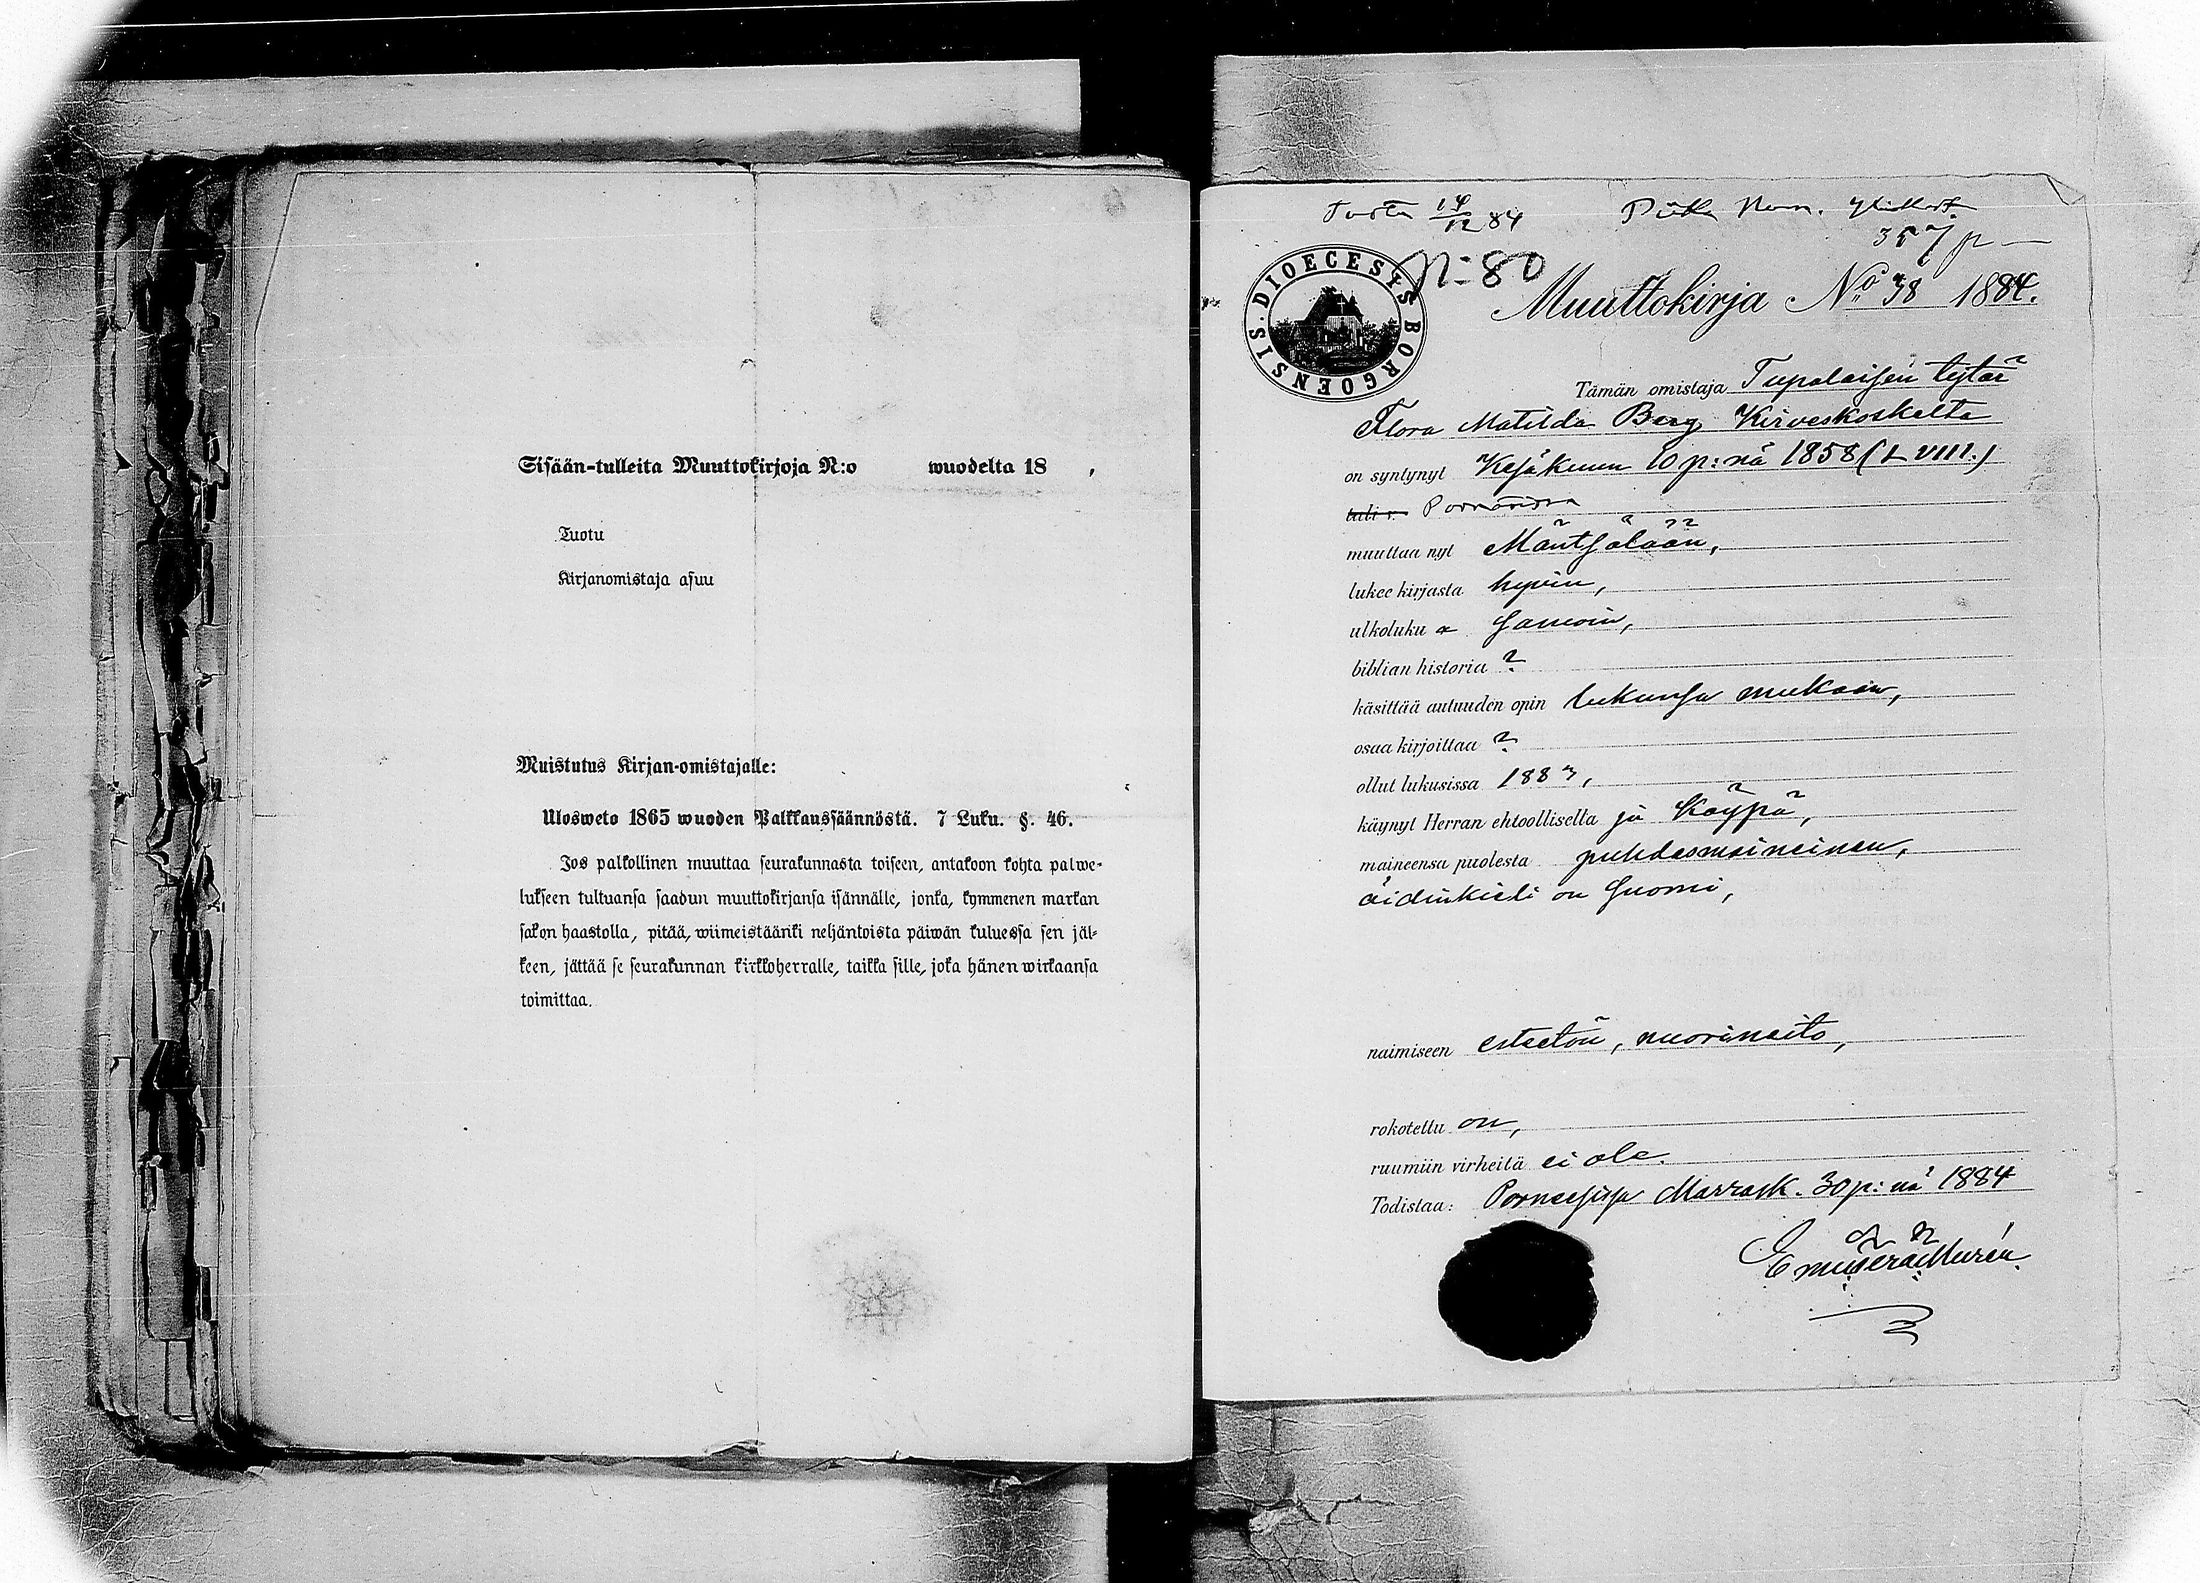 Sisään-tulleita Muuttokirjoja N:o wuodelta 18 ,
Tuotu
Kirjanomistaja asuu
Muistutus Kirjan-omistajalle:
Ulosweto 1865 wuoden Palkkaussäännöstä. 7 Luku. §. 46.
Jos palkollinen muuttaa seurakunnasta toiseen, antakoon kohta palwe-
lukseen tultuansa saadun muuttokirjansa isännälle, jonka, kymmenen markan
sakon haastolla, pitää, wiimeistäänki neljäntoista päiwän kuluessa sen jäl-
keen, jättää se seurakunnan kirkkoherralle, taikka sille, joka hänen wirkaansa
toimittaa.
14/12 84 Piika Num.
357 p
N:80
DIOECESIS BORGOENSIS.
Muuttokirja No 38 1884.
Tämän omistaja Tupalaisen tytär
Flora Matilda Berg Kirveskoskelta
on syntynyt Kesäkuun 10 p:nä 1858 (L VIII.)
tuli s. Pornaisissa
muuttaa nyt Mäntsälään,
lukee kirjasta hyvin,
ulkoluku samoin,
biblian historia ?
käsittää autuuden opin lukunsa mukaan,
osaa kirjoittaa ?
ollut lukusissa 1883,
käynyt Herran ehtoollisella ja käypä,
maineensa puolesta puhdasmaineinen,
äidinkieli on suomi,
naimiseen esteetön, nuorineito,
rokotettu on,
ruumiin virheitä ei ole.
Todistaa: Pornaisissa Marrask. 30 p:nä 1884